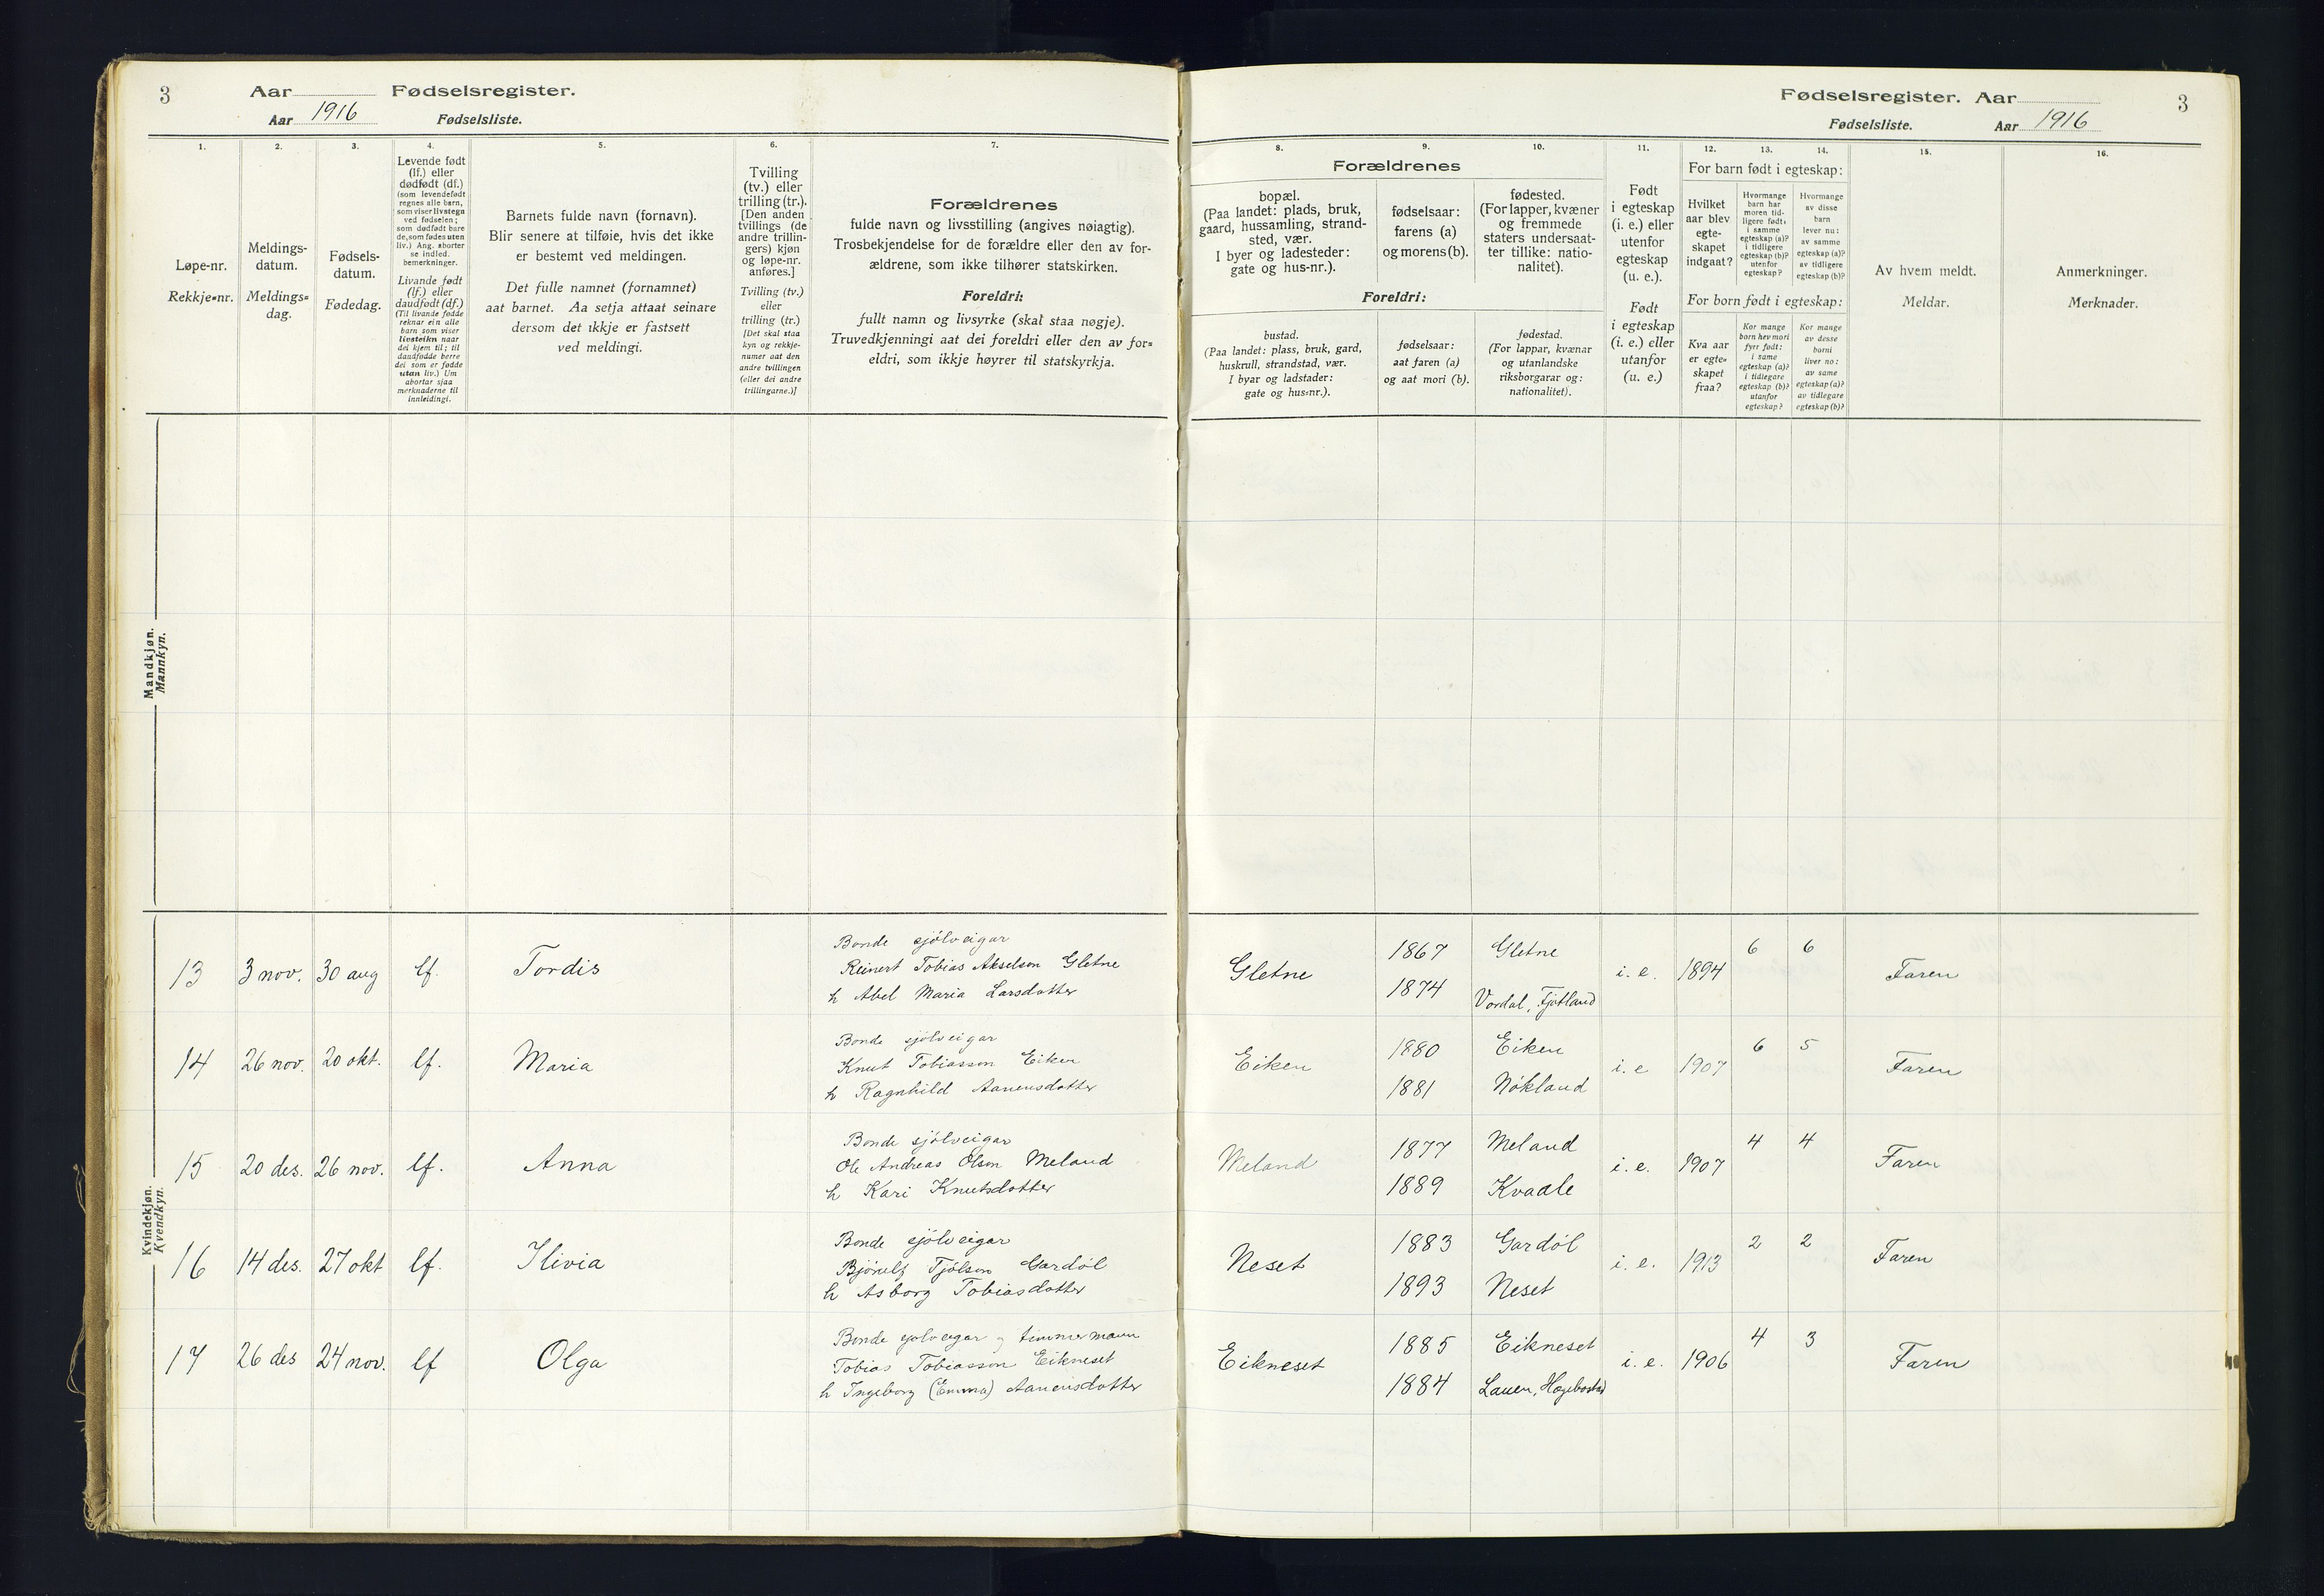 3
Aar
Fødselsregister.
Aar 1916
Fødselsliste.
1.
Løpe-nr.
Rekkje-nr.
2.
Meldings-
datum.
Meldings-
dag.
3.
Fødsels-
datum.
Fødedag.
4.
Levende født
(lf.) eller
dødfødt (df.)
(som levendefødt
regnes alle barn,
som viser livstegn
ved fødselen;
som dødfødt bare
de, som fødes uten
liv.) Ang. aborter
se indled.
bemerkninger.
Livande født
(lf.) eller
daudfødt (df.)
(Til livande fødde
reknar ein alle
barn som viser
livsteikn naar
dei kjem til; til
daudfødde berre
dei som er fødde
utan liv.) Um
abortar sjaa
merknaderne til
innleidingi.
5.
Barnets fulde navn (fornavn).
Blir senere at tilføie, hvis det ikke
er bestemt ved meldingen.
Det fulle namnet (fornamnet)
aat barnet. Aa setja attaat seinare
dersom det ikkje er fastsett
ved meldingi.
6.
Tvilling
(tv.) eller
trilling (tr.).
[Den anden
tvillings (de
andre trillin-
gers) kjøn
og løpe-nr.
anføres.]
Tvilling (tv.)
eller
trilling (tr.)
[Det skal staa
kyn og rekkje-
numer aat den
andre tvillingen
(eller dei andre
trillingarne.)]
7.
Forældrenes
fulde navn og livsstilling (angives nøiagtig).
Trosbekjendelse for de forældre eller den av for-
ældrene, som ikke tilhører statskirken.
Foreldri:
fullt namn og livsyrke (skal staa nøgje).
Truvedkjenningi aat dei foreldri eller den av for-
eldri, som ikkje høyrer til statskyrkja.
Fødselsregister. Aar
3
Fødselsliste.
Aar 1916
Forældrenes
8.
bopæl.
(Paa landet: plads, bruk,
gaard, hussamling, strand-
sted, vær.
I byer og ladesteder:
gate og hus-nr.).
9.
fødselsaar:
farens (a)
og morens (b).
10.
fødested.
(For lapper, kvæner
og fremmede
staters undersaat-
ter tillike: natio-
nalitet).
Foreldri:
bustad.
(Paa landet: plass, bruk, gard,
huskrull, strandstad, vær.
I byar og ladstader:
gate og hus-nr.).
fødselsaar:
aat faren (a)
og aat mori (b).
fødestad.
(For lappar, kvænar
og utanlandske
riksborgarar og:
nationalitet).
11.
Født
i egteskap
(i. e.) eller
utenfor
egteskap
(u. e.).
Født
i egteskap
(i. e.) eller
utanfor
(u. e.)
12.
13.
14.
For barn født i egteskap:
Hvilket
aar blev
egte-
skapet
indgaat?
Hvormange
barn har
moren tid-
ligere født:
i samme
egteskap (a)?
i tidligere
egteskap (b)?
utenfor
egteskap?
Hvormange
av disse
barn
lever nu:
av samme
egteskap (a)?
av tidligere
egteskap (b)?
For born født i egteskap:
Kva aar
er egte-
skapet
fraa?
Kor mange
born hev mori
fyrr født:
i same
egteskap (a)?
i tidlegare
egteskap (b)?
utanfor
egteskap?
Kor mange
av desse
borni
liver no:
av same
egteskap (a)?
av tidlegare
egteskap (b)?
15.
Av hvem meldt.
Meldar.
16.
Anmerkninger.
Merknader.
Mandkjøn.
Mannkyn.
Kvindekjøn.
Kvendkyn.
13 3 nov. 30 aug lf. Tordis
Bonde sjölveigar
Reinert Tobias Akselson Gletne
h Abel Maria Larsdotter
Gletne
1867 Gletne
1874 Vordal, Fjotland
i. e. 1894 6 6 Faren
14 26 nov. 20 okt. lf. Maria
Bonde sjölveigar
Knut Tobiasson Eiken
h Ragnhild Aanensdotter
Eiken
1880 Eiken
1881 Nökland
i. e 1907 6 5 Faren
15 20 des. 26 nov. lf. Anna
Bonde sjölveigar
Ole Andreas Olson Meland
h Kari Knutsdotter
Meland
1877 Meland
1889 Kvaale
i. e. 1907 4 4 Faren
16 14 des. 27 okt lf. Ilivia
Bonde sjölveigar
Tjölson Gardöl
h Asborg Tobiasdotter
Neset
1883 Gardöl
1893 Neset
i. e. 1913 2 2 Faren
17 26 des 24 nov. lf Olga
Bonde sjolveigar og timmermann
Tobias Tobiasson Eikneset
h Ingeborg (Emma) Aanensdotter
Eikneset
1885 Eikneset
1884 Lauen, Hægebostad
i. e. 1906 4 3 Faren